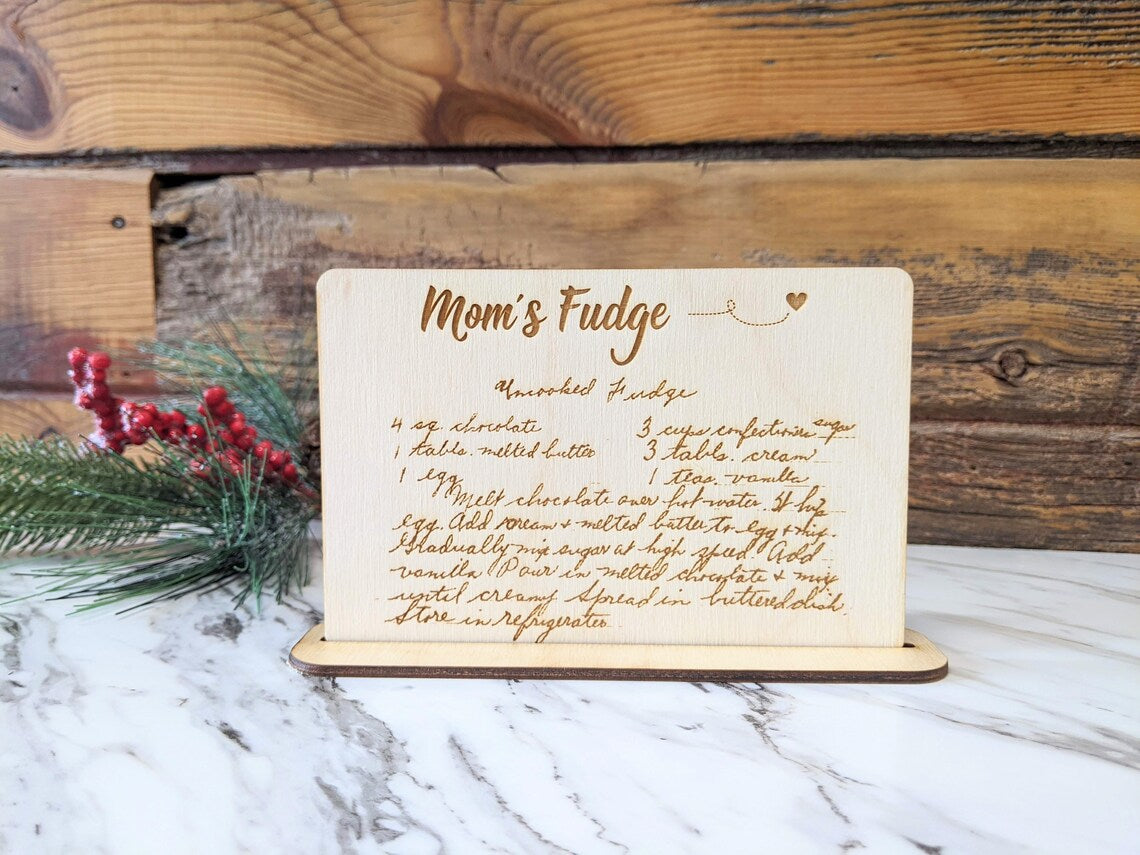 Mom's Fudge
Uncooked Fudge
4 sq. chocolate 3 cups confectioners sugar
1 tabls. melted butter 3 tabls. cream
1 egg 1 teas. vanilla
Melt chocolate over hot water. Whip
egg. Add cream + melted butter to egg + mix.
Gradually mix sugar at high speed. Add
vanilla. Pour in melted chocolate & mix
until creamy. Spread in buttered dish.
Store in refrigerator.